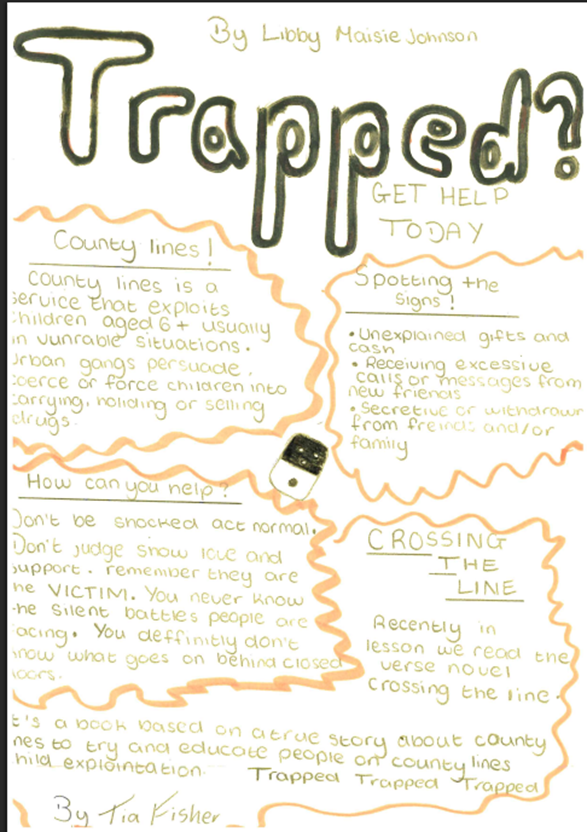 By Libby Maisie Johnson
Trapped?
GET HELP
TODAY
County lines!
County lines is a
service that exploits
children aged 6+ usually
in vunrable situations.
Urban gangs persuade,
coerce or force children into
carrying, holiding or selling
drugs.
Spotting the
signs!
• Unexplained gifts and
cash
• Receiving excessive
calls or messages from
new friends
• Secretive or withdrawn
from freinds and/or
family
How can you help?
Don't be shocked act normal.
Don't judge show love and
support. remember they are
the VICTIM. You never know
the silent battles people are
facing. You deffinitly don't
know what goes on behind closed
doors.
CROSSING
THE
LINE
Recently in
lesson we read the
verse novel
crossing the line.
It's a book based on a true story about county
lines to try and educate people on county lines
child explointation. Trapped Trapped Trapped
By Tia Fisher